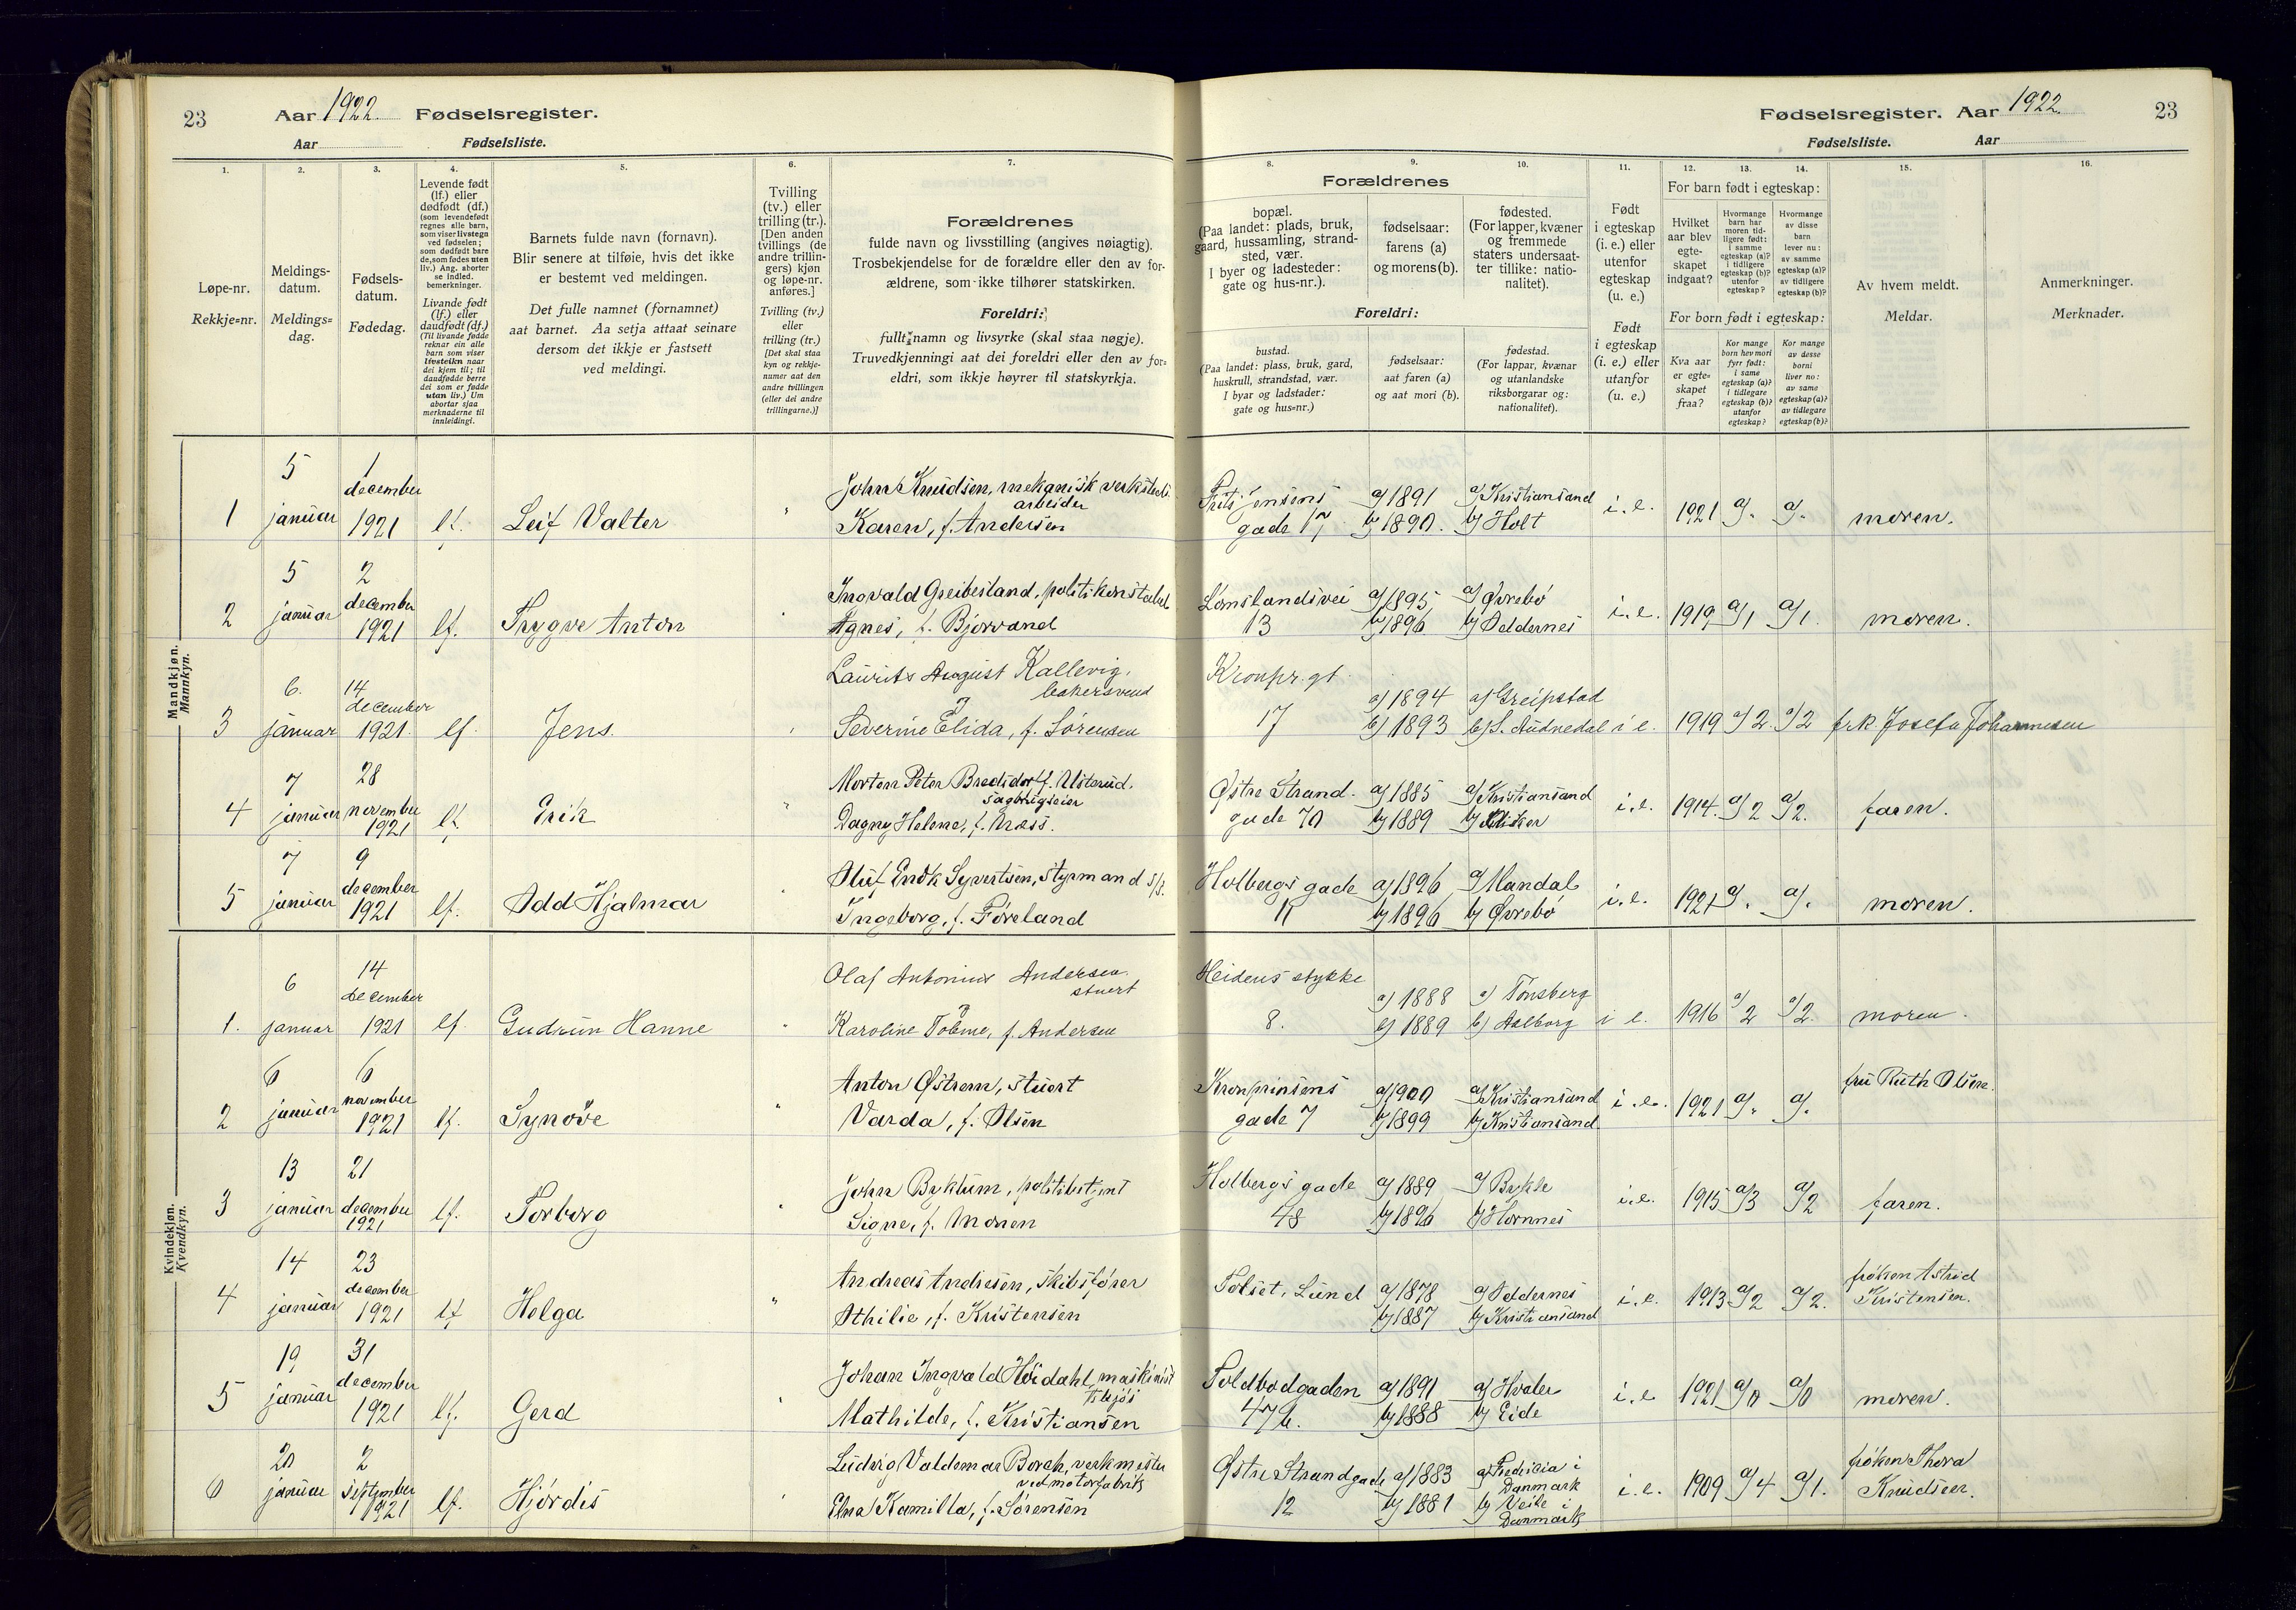 23
Aar 1922. Fødselsregister.
Aar Fødselsliste.
1.
2.
3.
4.
5.
6.
7.
Løpe-nr.
Rekkje=nr.
Meldings-
datum.
Meldings=
dag.
Fødsels-
datum.
Fødedag.
Levende født
(lf.) eller
dødfødt (df.)
(som levendefødt
regnes alle barn,
som viser livstegn
ved fødselen;
som dødfødt bare
de, som fødes uten
liv.) Ang. aborter
se indled.
bemerkninger.
Livande født
(lf.) eller
daudfødt (df.)
(Til livande fødde
reknar ein alle
barn som viser
livsteikn naar
dei kjem til; til
daudfødde berre
dei som er fødde
utan liv.) Um
abortar sjaa
merknaderne til
innleidingi.
Barnets fulde navn (fornavn).
Blir senere at tilføie, hvis det ikke
er bestemt ved meldingen.
Det fulle namnet (fornamnet)
aat barnet. Aa setja attaat seinare
dersom det ikkje er fastsett
ved meldingi.
Tvilling
(tv.) eller
trilling (tr.).
[Den anden
tvillings (de
andre trillin-
gers) kjøn
og løpe-nr.
anføres.]
Tvilling (tv.)
eller
trilling (tr.)
[Det skal staa
kyn og rekkje-
numer aat den
andre tvillingen
(eller dei andre
trillingarne.)]
Forældrenes
fulde navn og livsstilling (angives nøiagtig).
Trosbekjendelse for de forældre eller den av for-
ældrene, som ikke tilhører statskirken.
Foreldri:
fullt namn og livsyrke (skal staa nøgje).
Truvedkjenningi aat dei foreldri eller den av for-
eldri, som ikkje høyrer til statskyrkja.
Mandkjøn.
Mannkyn.
1
5
januar
1
december
1921
lf.
Leif Valter
"
John Knudsen, mekanisk verksteds
arbeider
Karen, f. Andersen
2
5
januar
2
december
1921
lf.
Trygve Anton
"
Ingvald Greibesland, politikonstabel
Agnes, f. Bjorvand
3
6.
januar
14
december
1921.
lf.
Jens.
"
Laurits August Kallevig,
bakersvend
Severine Elida, f. Sørensen
4
7
januar
28
november
1921
lf.
Erik
"
Morten Peter Bredsdorff
sagbrugseier
Dagny Helene, f.
5
7
januar
9
december
1921
lf.
Odd Hjalmar
"
Oluf Syvertsen, styrmand
Ingeborg, f. Føreland
Kvindekjøn.
Kvendkyn.
1.
6
januar
14
december
1921
lf.
Gudrun Hanne
"
Olaf Antonius Andersen.
stuert
Karoline f. Andersen
2
6
januar
6
november
1921
lf.
Synøve
"
Anton Østrem, stuert
Varda, f. Olsen
3
13
januar
21
december
1921
lf.
Torborg
"
John Byklum, politibetjent
Signe, f. Moren
4
14
januar
23
december
1921
lf
Helga
"
Andreas Andresen, skibsfører
Othilie, f. Kristensen
5
19
januar
31
december
1921
lf.
Gerd
"
Johan Ingvald Hørdahl, maskinist
tilsjøs
Mathilde, f. Kristiansen
6
20
januar
2
september
1921
lf.
Hjørdis
"
Ludvig Valdemar Borch, verkmester
ved motorfabrik
Elna Kamilla, f. Sørensen
Fødselsregister. Aar 1922. 23
Fødselsliste. Aar
8.
9.
10.
11.
12.
13.
14.
15.
16.
Forældrenes
bopæl.
(Paa landet: plads, bruk,
gaard, hussamling, strand-
sted, vær.
I byer og ladesteder:
gate og hus-nr.).
fødselsaar:
farens (a)
og morens (b).
fødested.
(For lapper, kvæner
og fremmede
staters undersaat-
ter tillike: natio-
nalitet).
Foreldri:
bustad.
(Paa landet: plass, bruk, gard,
huskrull, strandstad, vær.
I byar og ladstader:
gate og hus=nr.)
fødselsaar:
aat faren (a)
og aat mori (b).
fødestad.
(For lappar, kvænar
og utanlandske
riksborgarar og:
nationalitet).
Født
i egteskap
(i. e.) eller
utenfor
egteskap
(u. e.)
Født
i egteskap
(i. e.) eller
utanfor
(u. e.)
For barn født i egteskap:
Hvilket
aar blev
egte-
skapet
indgaat?
Hvormange
barn har
moren tid-
ligere født:
i samme
egteskap (a)?
i tidligere
egteskap (b)?
utenfor
egteskap?
Hvormange
av disse
barn
lever nu:
av samme
egteskap (a)?
av tidligere
egteskap (b)?
For born født i egteskap:
Kva aar
er egte=
skapet
fraa?
Kor mange
born hev mori
fyrr født:
i same
egteskap (a)?
i tidlegare
egteskap (b)?
utanfor
egteskap?
Kor mange
av desse
borni
liver no:
av same
egteskap (a)?
av tidlegare
egteskap (b)?
Av hvem meldt.
Meldar.
Anmerkninger.
Merknader.
Frits Jensens
gade 17
a) 1891
b) 1890.
a) Kristiansand
b) Holt
i. e.
1921
a).
a).
moren.
Lømslandsvei
13
a) 1895
b) 1896
a) Øvrebø
b) Oddernes
i. e.
1919
a) 1
a) 1.
moren.
Kronpr. gt.
17
a) 1894
b) 1893
a) Greipstad
b) S. Audnedal
i e.
1919
a) 2.
a) 2
frk Josefa Johannesen
Østre Strand-
gade 70
a) 1885
b) 1889
a) Kristiansand
b)
i. e.
1914.
a) 2
a) 2.
faren.
Holbergs gade
11
a) 1896
b) 1896
a) Mandal
b) Øvrebø
i. e.
1921
a).
a).
moren.
Heidens stykke
8.
a) 1888
b) 1889
a) Tønsberg
b) Aalborg
i e.
1916
a) 2
a) 2.
moren.
Kronprinsens
gade 7
a) 1900
b) 1899
a) Kristiansand
b) Kristiansand
i. e.
1921
a).
a).
fru Ruth Olsen.
Holbergs gade
48
a) 1889
b) 1896
a) Bykle
b) Hornnes
i. e.
1915
a) 3
a) 2
faren.
Solset, Lund
a) 1878
b) 1887
a) Oddernes
b) Kristiansand
i. e.
1913
a) 2
a) 2.
frøken Astrid
Kristensen.
Toldbodgaden
47 b.
a) 1891
b) 1888
a) Hvaler
b) Eide
i. e
1921
a) 0
a) 0
moren.
Østre Strandgade
12
a) 1883
b) 1881
a) Fredericia i
Danmark
b) Veile i
Danmark
i. e.
1909
a) 4
a) 1.
frøken Thora
Knudsen.